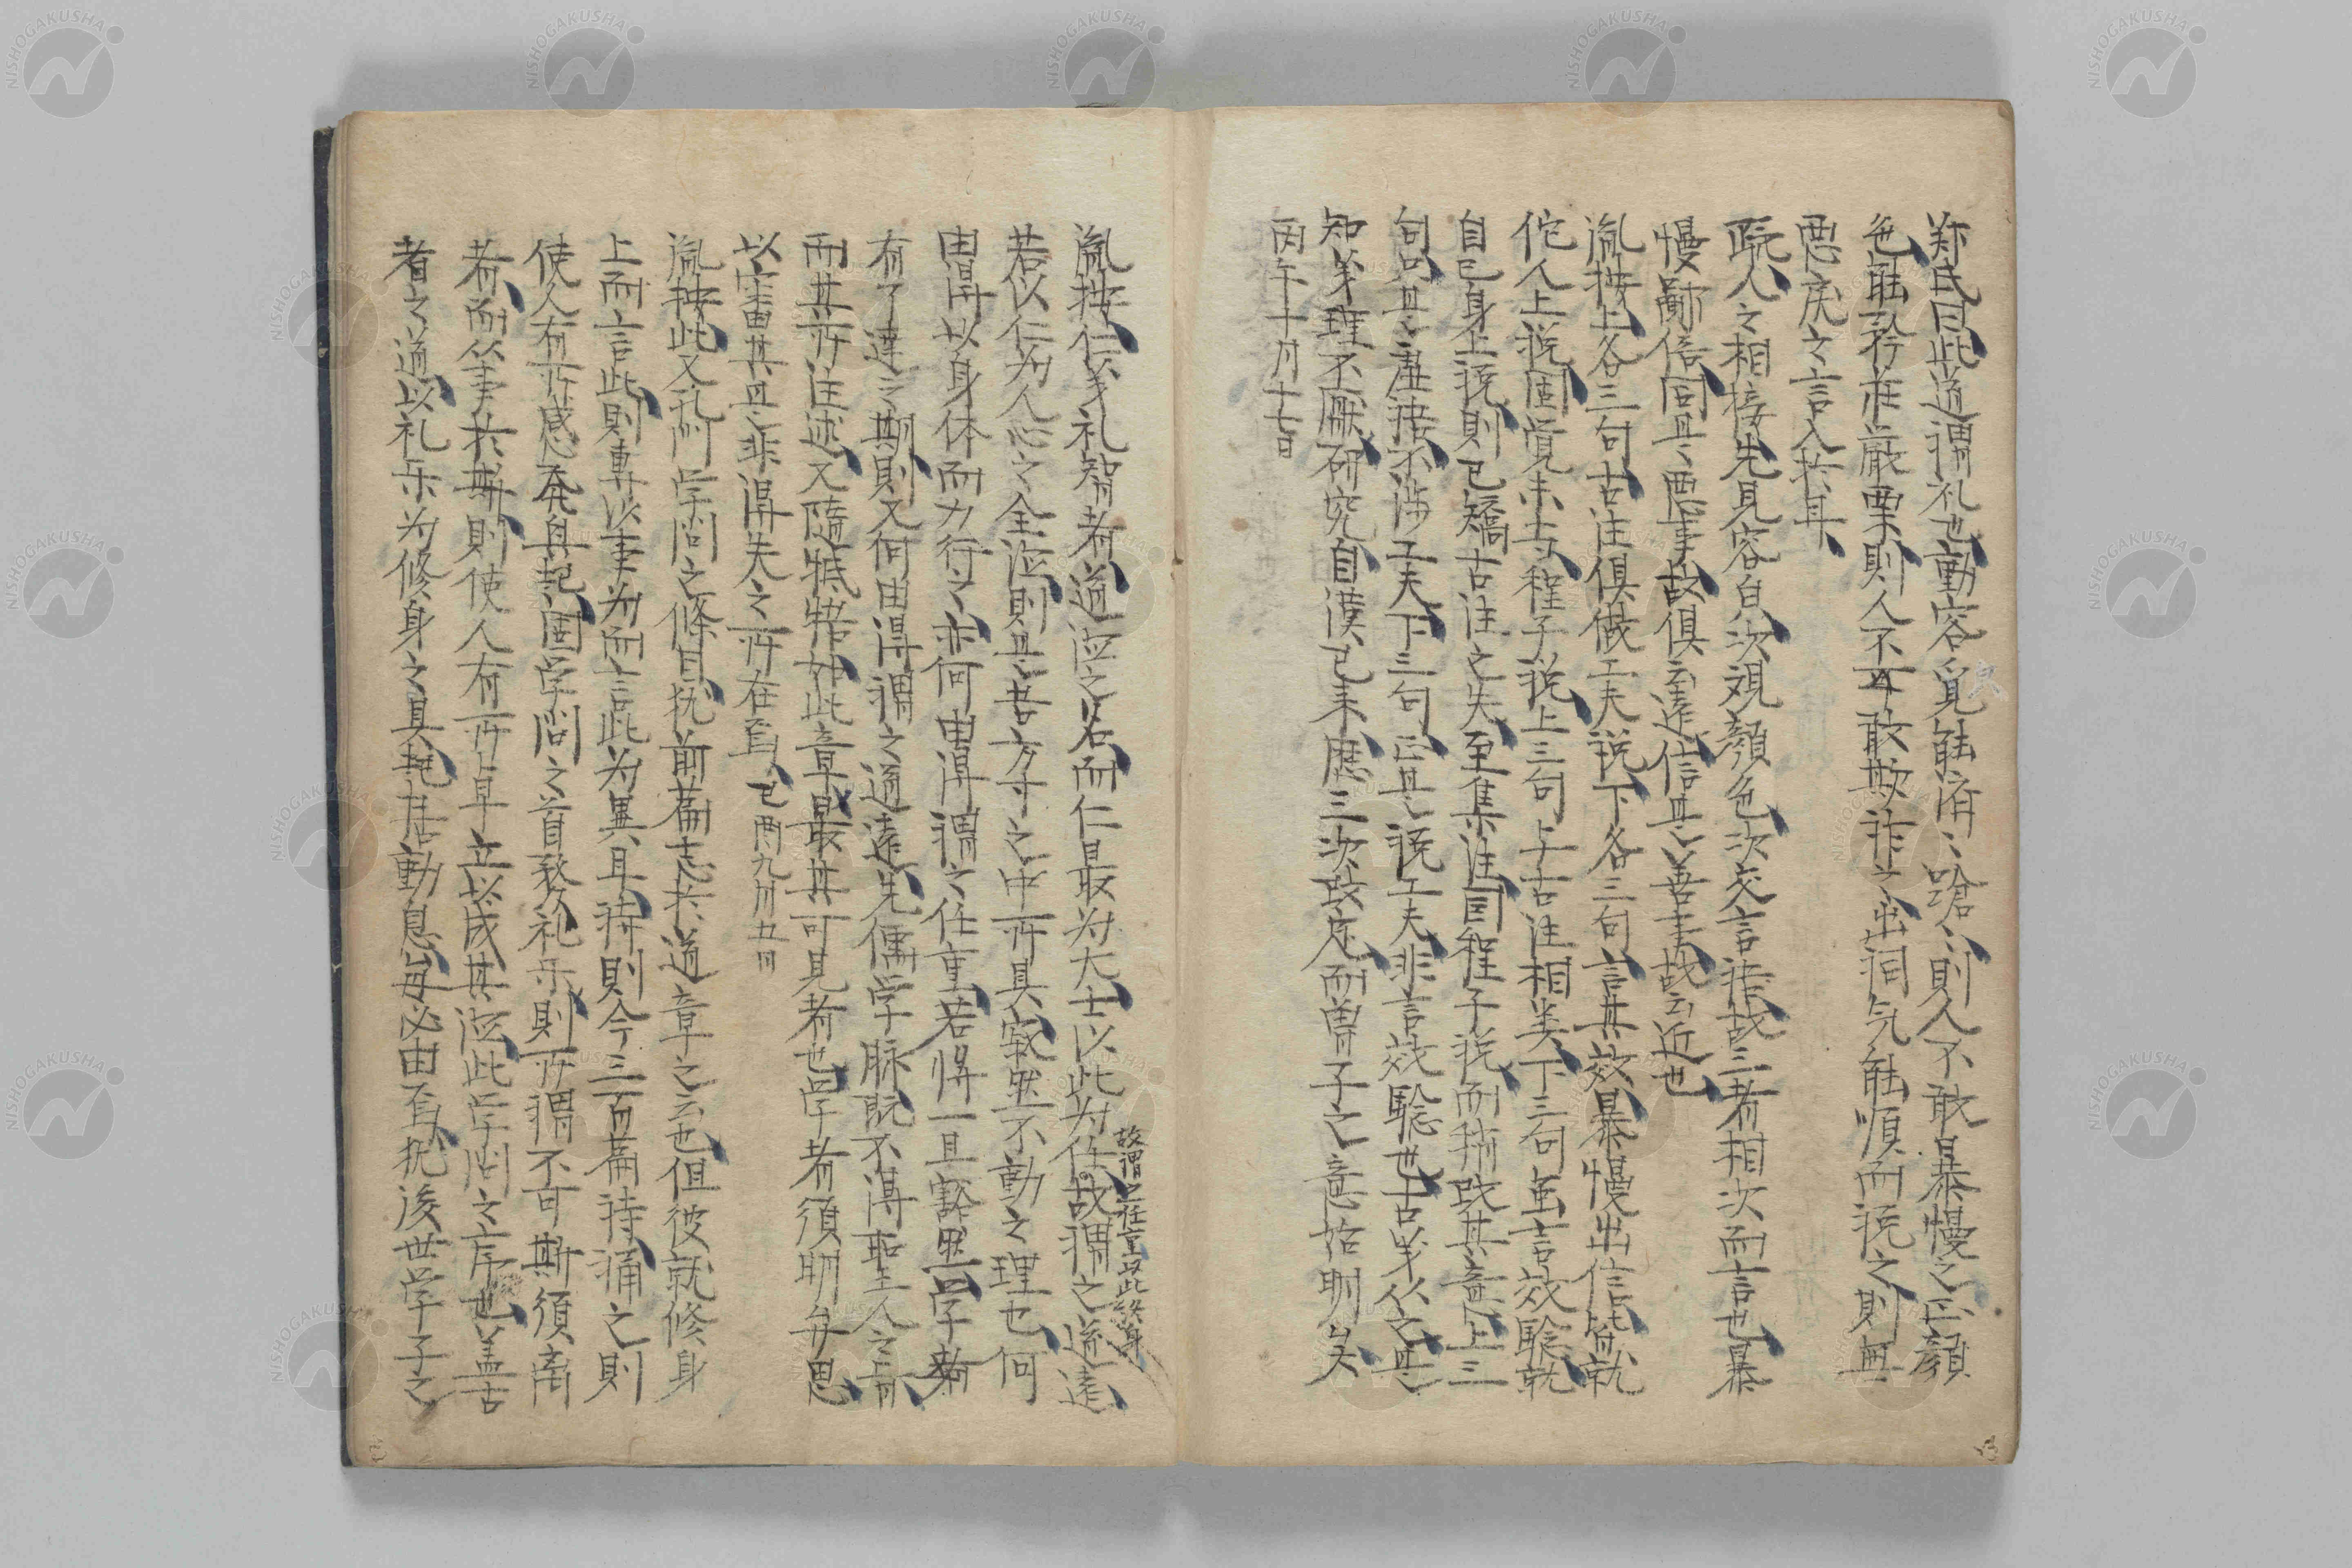 鄭氏曰此道謂礼也動容皃能済〻蹌〻則人不敢暴慢之正顔
色能矜荘厳栗則人不敢欺詐之出詞気能順而説之則無
悪戻之言入於耳
胤人之相接先見容皃次覌顔色次交言語故三者相次而言也暴
慢鄙倍同是悪事故俱云遠信是善事故云近也
胤按上各三句古注俱做工夫説下各三句言其效暴慢出信皆就
佗人上説固覚未妥程子説上三句与古注相类下三句虽言效驗就
自己身上説則已矯古注之失至集注因程子説而稍改其意上三
句只是虚接不渉工夫下三句正是説工夫非言效驗也古义以之是
知义理不厭研究自漢已来歴三次改定而曽子之意始明矣
丙午十月十七日
胤按仁义礼智者道徳之名而仁最为大士以此为任故謂之道遠
故謂之任重以此終身
若以仁为人心之全徳則是吾方寸之中所具寂然不動之理也何
由得以身体而力行之亦何由得謂之任重若将一旦豁然学者
有了達之期則又何由得謂之道遠先儒学脉既不得聖人之旨
而其所注述又随牴牾如此章最其可見者也学者須明弁思
以審其是非得失之所在焉 己酉九月五日
胤按此又孔門学問之條目犹前篇志於道章之云也但彼就修身
上而言此則専以事为而言此为異耳詩則今三百篇詩誦之則
使人有所感発興起固学問之首務礼乐則所謂不可斯須离
者而从事於斯則使人有所卓立以成其徳此学問之序也盖古
者之道以礼乐为修身之具起居動息毎必由焉犹後世学子之